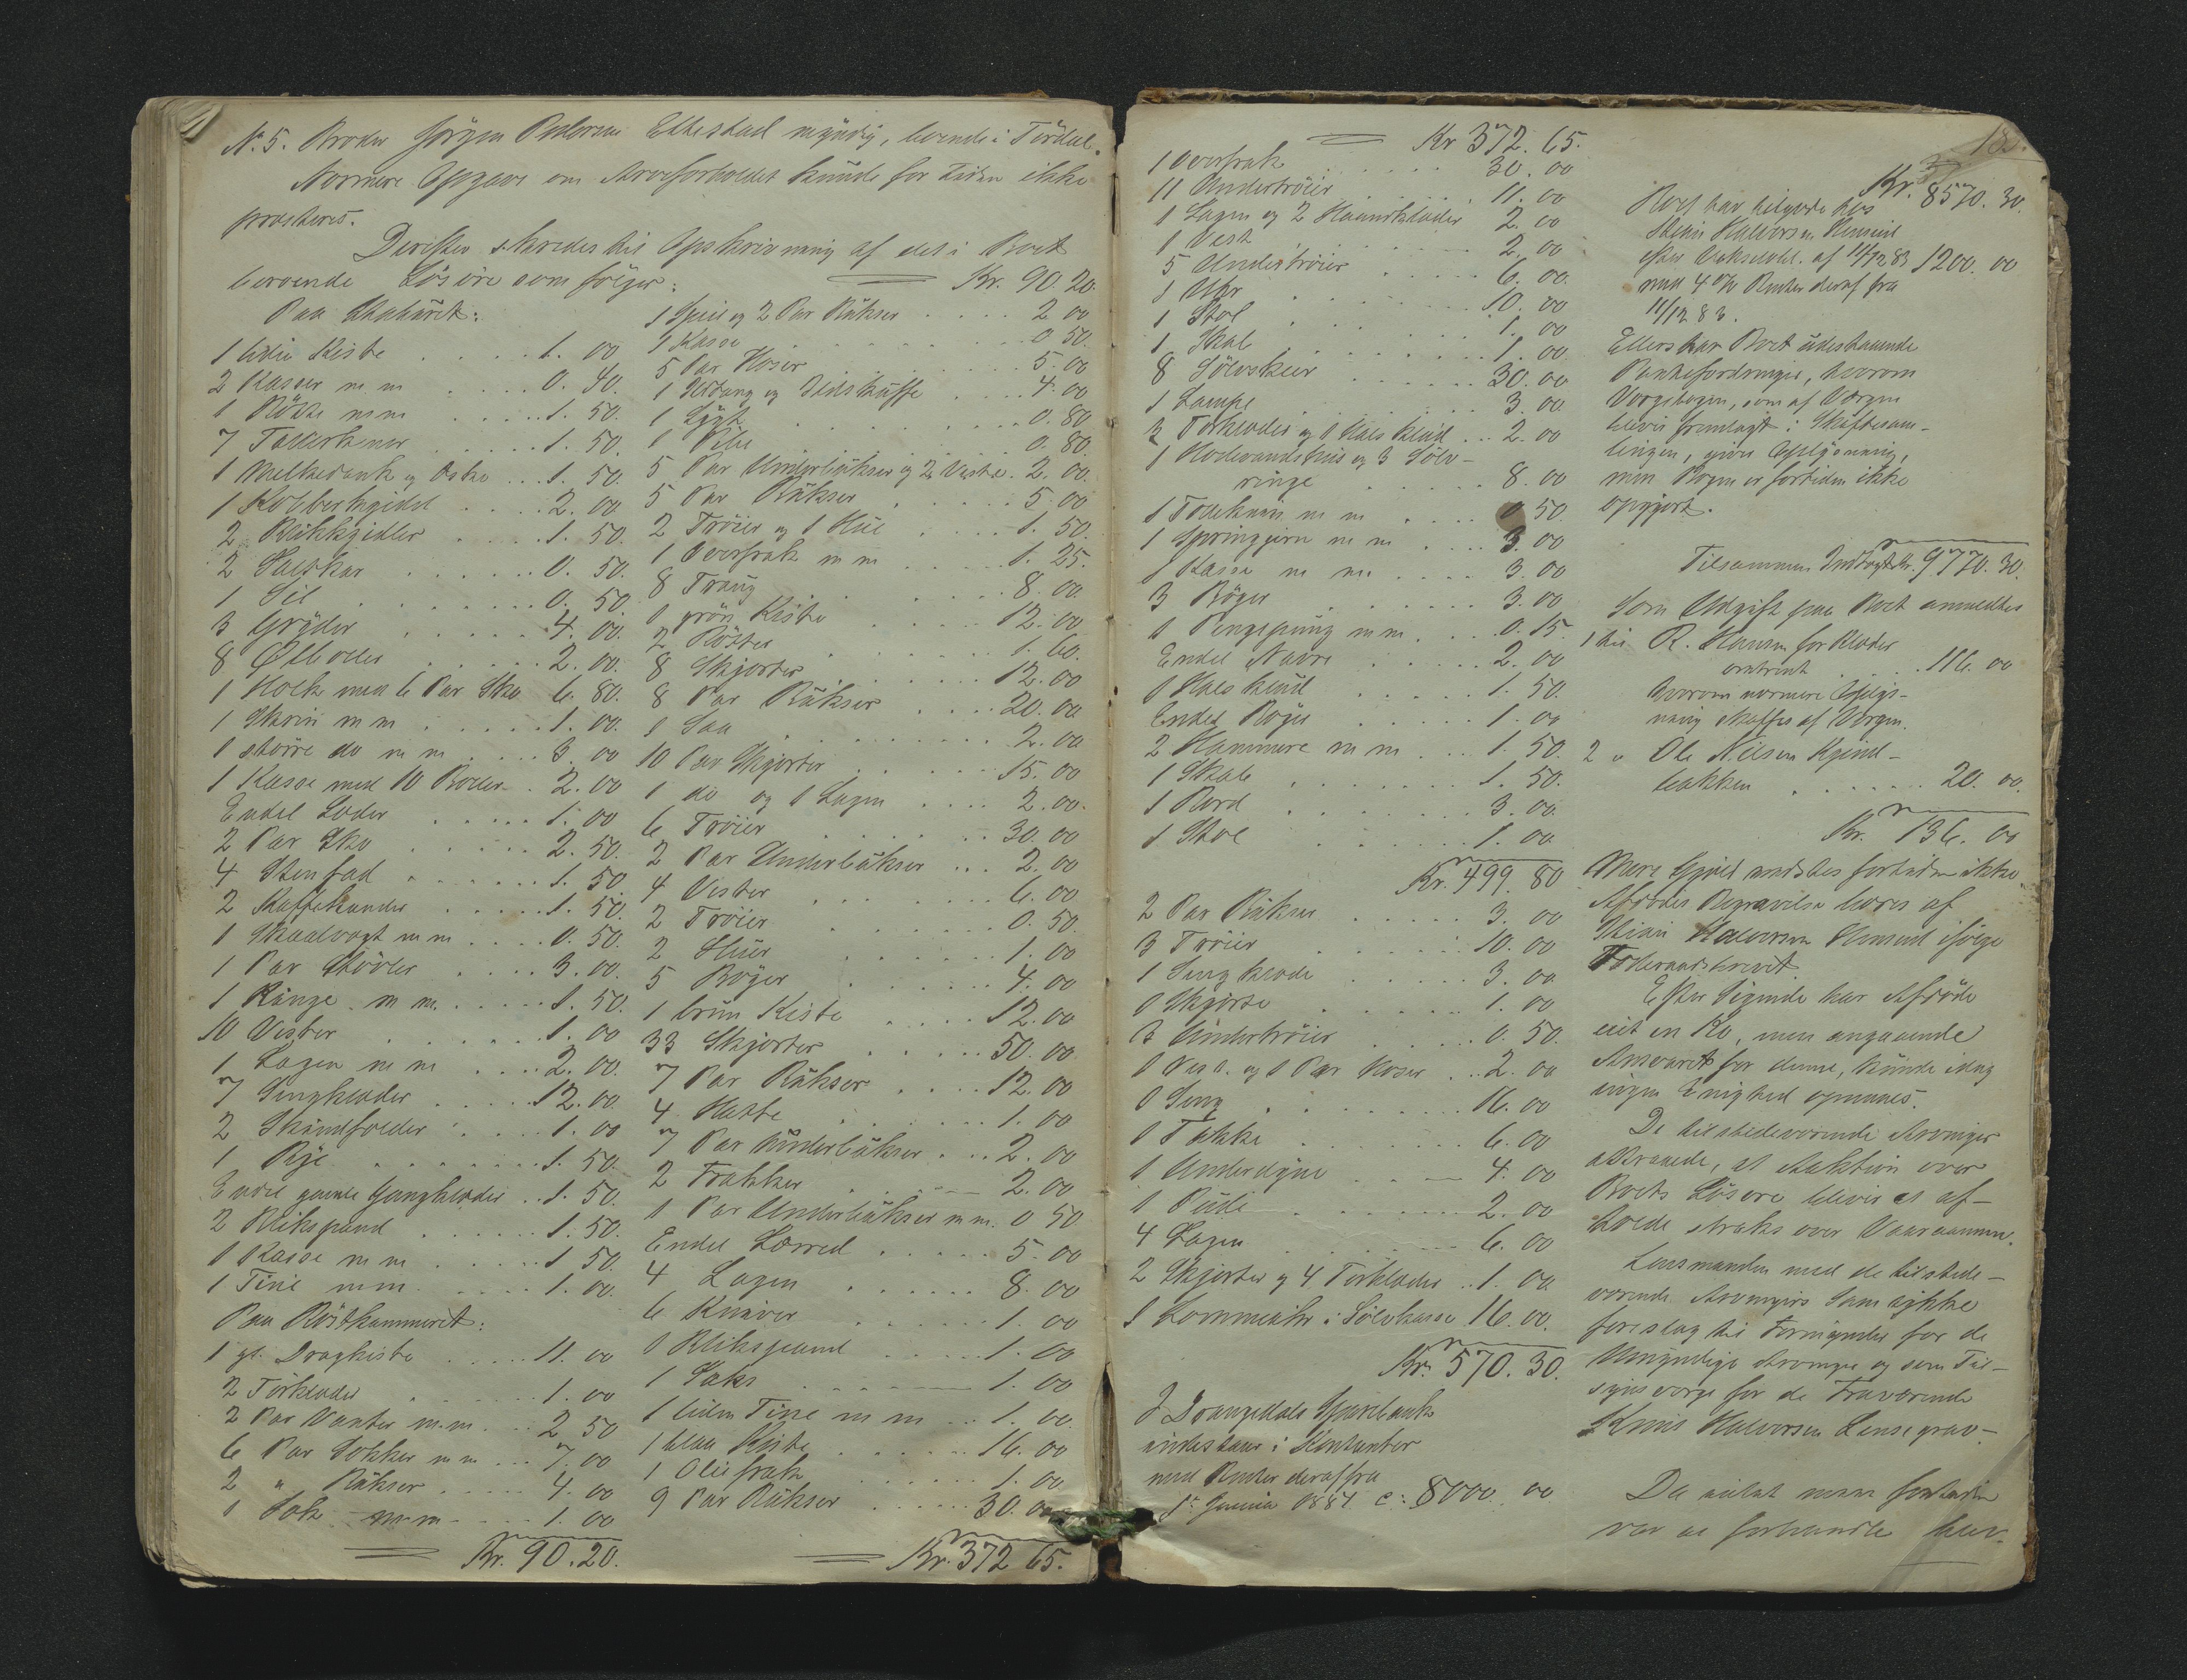 No. 5. Broder Jörgen Pedersen Ettestad myndig, boende i Tördal.
Nærmere Opgave om Arveforholdet kunde for Tiden ikke
præsteres.
Derefter skredes til Opskrivning af det i Boet
beroende Lösöre som fölger:
Paa Stabüret:
1 liden Kiste 1. 00
2 Kasser m m 0. 40.
1 Bötte m m 1. 50.
7 Tallerkner 1. 50.
1 Melkedunk og Æske 1. 50.
1 Kobberkjedel 2. 00
2 Blikkjedler 1. 50.
2 Saltkar 0. 50.
1 Sil 0. 50.
3 Gryder 4. 00.
8 Ølboller 2. 00.
1 Holk med 6 Par Sko 6. 80.
1 Skrin m m 1. 00.
1 større do m m 3. 00
1 Kasse med 10 Boller 2. 00
Endel Læder 1. 00
2 Par Sko 2. 50.
4 Stenfad 1. 50
2 Kaffekander 1. 50.
1 Skaalvægt m m 0. 50.
1 Par Stövler 3. 00.
1 Ränge m m. 1. 50.
10 Vester 1. 00
1 Lagen m m 2. 00.
7 Sengklæder 12. 00.
2 Skindfælder 1. 00
1 Rye 1. 50.
Endel gamle Gangklæder 1. 50.
2 Blikspand 1. 50.
1 Kasse m m 1 50.
1 Tine m m. 1. 00.
Paa Röstkammeret:
1 gl. Dragkiste 11. 00
2 Törklæder 1. 00
2 Par Vanter m.m. 2 50
6 Par Sokker m m 7. 00
2 " Bükser 4. 00
1 Sæk m m 1. 00
Kr. 90. 20.
Kr. 90. 20.
1 Speil og 2 Par Bükser 2 00
1 Kasse 0 50.
5 Par Hoser 5. 00
1 Uldvang og Uldskuffe 4. 00
1 Lygt 0. 80
1 Pibe 0. 80.
5 Par Underbükser og 2 Veste 2. 00.
5 Par Bükser 5. 00
2 Tröier og 1 Hüe 1. 50.
1 Overfrak m m 1. 25.
8 Traug 8. 00.
1 grön Kiste 12. 00
2 Bötter 1. 60.
8 Skjorter 12. 00
8 Par Bükser 20. 00.
1 Saa 2. 00
10 Par Skjorter 15. 00
1 do og 1 Lagen 2. 00.
6 Tröier 30. 00
2 Par Underbükser 2. 00
4 Vester 6. 00
2 Tröier 0. 50.
2 Hüer 1. 00
5 Böger 4. 00
1 brün Kiste 12. 00
33 Skjorter 50. 00.
7 Par Bükser 12. 00
4 Hatte 1. 00
7 Par Underbükser 2. 00
2 Frakker 2. 00
1 Par Underbükser m m. 0 50
Endel Lærred 5. 00
4 Lagen 8. 00
6 Kniver 1. 00
1 Blikspand 1. 00
1 Saks 1. 00
1 liden Tine m m 1. 00.
1 blaa Kiste 16. 00
1 Oliefrak 1. 00
9 Par Bükser 30. 00
Kr. 372 65.
Kr 372. 65.
1 Overfrak 30. 00
11 Undertröier 11. 00
1 Lagen og 2 Haandklæder 2. 00
1 Vest 2. 00
5 Undertröier 6. 00.
1 Uhr 10. 00
1 Stol 1. 00
1 Skab 1. 00.
8 Sölvskeer 30. 00
1 Lampe 3. 00
3 Törklæder og 1 Halsklüd 2. 00
1 Hovedvandshüs og 3 Sölv-
ringe 8. 00
1 Tollekniv m m 0 50.
1 Springjern m m 3. 00
1 Kasse m m 3. 00
3 Böger 3. 00
1 Pengepung m m. 0. 15.
Endel Navre 2. 00
1 Halsklüd 1. 50.
Endel Böger 1. 00
2 Hammere m m 1. 50.
1 Skab 1. 50.
1 Bord 3. 00
1 Stol 1. 00
Kr. 499. 80
2 Par Bükser 3. 00
3 Tröier 10. 00
1 Sengklæde 3. 00
1 Skjorte 1. 00
3 Undertröier 0. 50.
1 Vest. og 1 Par Hoser 2. 00
1 Seng 16. 00
1 Täkke 6. 00
1 Underdyne 4. 00
1 Püde 2. 00
4 Lagen 6. 00
2 Skjorter og 4 Törklæder 1. 00.
1 Lommeühr i Sölvkasse 16. 00.
Kr. 570. 30.
I Drangedals Sparebank
indestaar i Kontanter
med Renter deraf fra
1te Januar 1884 8000. 00
185.
Kr. 8570. 30.
Boet har tilgode hos
Stian Halvorsen
efter Vekselobl. af 11/12 83 1200. 00
med 4 % Renter deraf fra
11/12 83.
Ellers har Boet udestaaende
Pantefordringer, hvorom
Vergebogen, som af Værgen
bliver fremlagt i Skiftesam-
lingen, giver Oplysning,
men Bogen er fortiden ikke
opgjort.
Tilsammen Indtægt Kr. 9770. 30.
Som Udgift paa Boet anmeldtes
1 til R. Hansen for Klæder
omtrent 116. 00
hvorom nærmere Oplys-
ning skaffes af Værgen.
2 " Ole Nilsen Kjend-
bakken 20. 00.
Kr. 136. 00
Mere Gjæld meldtes fortiden ikke.
Afdødes Begravelse bæres af
Stian Halvorsen ifølge
Föderaadsbrevet.
Efter Sigende har Afdøde
eiet en Ko, men angaaende
Ansvaret for denne, kunde idag
ingen Enighed opnaaes.
De tilstedeværende Arvinger
attraaede, at Auktion over
Boets Lösöre bliver at af-
holde straks over Vaaraannen.
Lensmanden med de tilstede-
værende Arvingers Samtykke
foreslog til Formynder for de
Umyndige Arvinger og som Til-
synsværge for de Fraværende
Halvorsen Lensegrav-
Da intet mere fortiden
var at forhandle blev